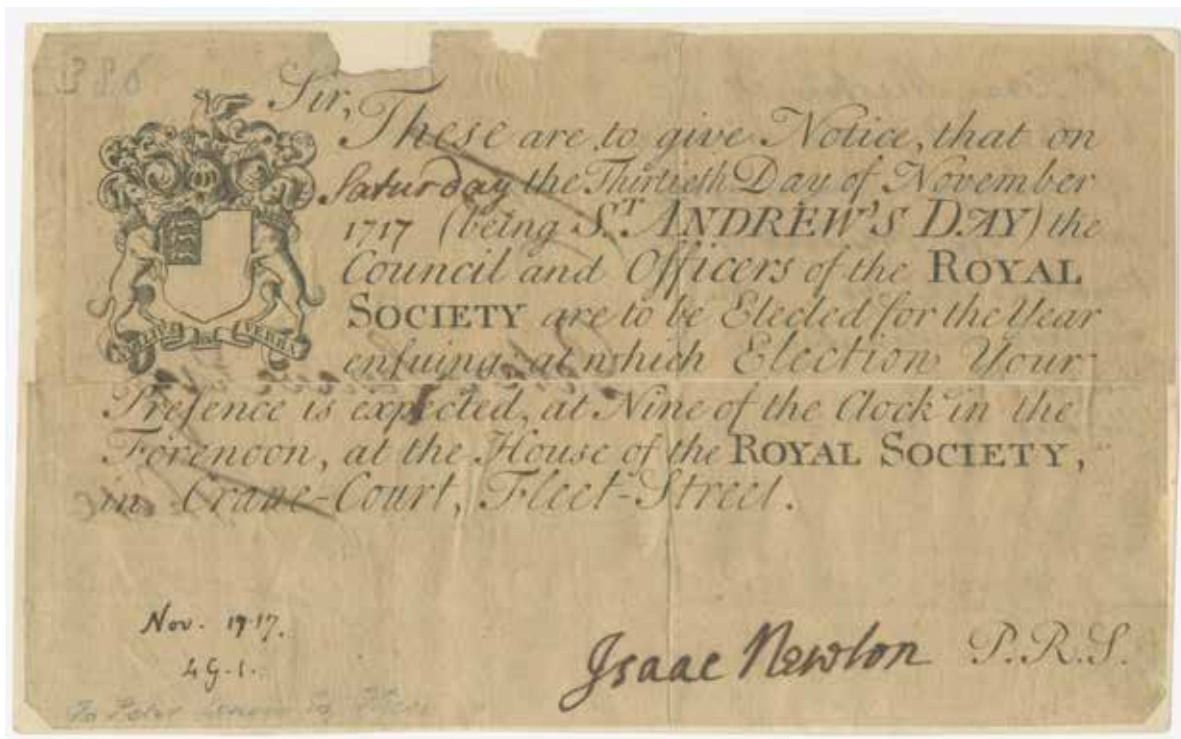 Sir,
These are to give Notice, that on
Saturday the Thirtieth Day of November
1717 (being S.T ANDREW'S DAY) the
Council and Officers of the ROYAL
SOCIETY are to be Elected for the Year
ensuing; at which Election Your
Presence is expected, at Nine of the Clock in the
Forenoon, at the House of the ROYAL SOCIETY,
in Crane-Court, Fleet-Street.
NULLIUS IN VERBA
Nov. 1717.
Isaac Newton P.R.S.
To Peter